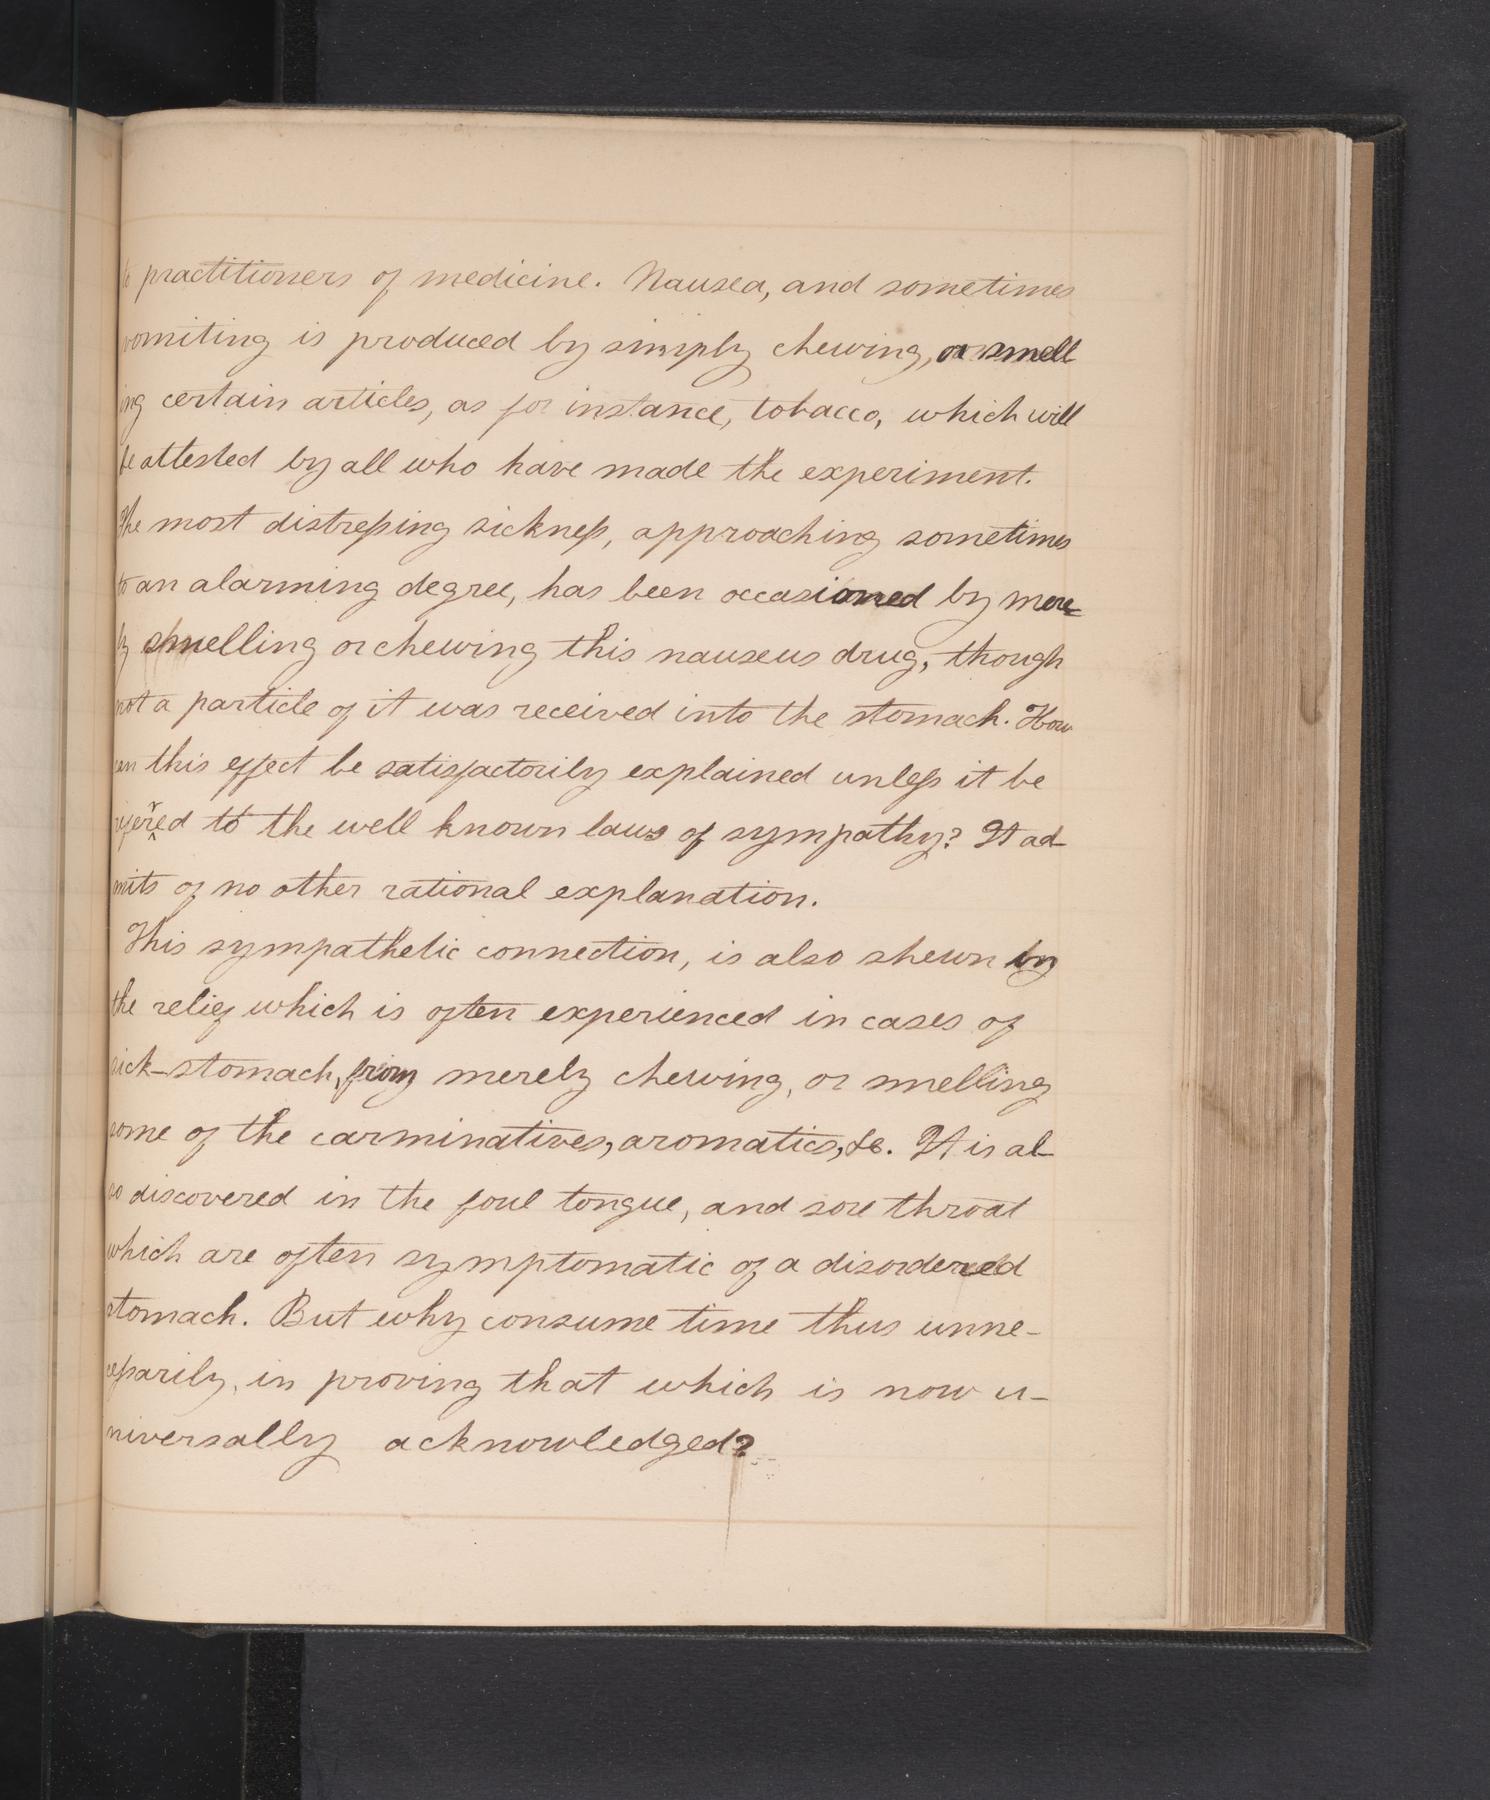 to practitioners of medicine. Nausea, and sometimes
vomiting is produced by simply chewing, or smell
ing certain articles, as for instance, tobacco, which will
be attested by all who have made the experiment.
The most distressing sickness, approaching sometimes
to an alarming degree, has been occasioned by mere-
ly smelling or chewing this nauseus drug, though
not a particle of it was received into the stomach. How
can this effect be satisfactorily explained unless it be
referred to the well known laws of sympathy? It ad-
mits of no other rational explanation.
This sympathetic connection, is also shewn by
the relief which is often experienced in cases of
sick-stomach, from merely chewing, or smelling
some of the carminatives, aromatics, &c. It is al-
so discovered in the foul tongue, and sore throat
which are often symptomatic of a disordered
stomach. But why consume time thus unne-
cessarily, in proving that which is now u-
niversally acknowledged?